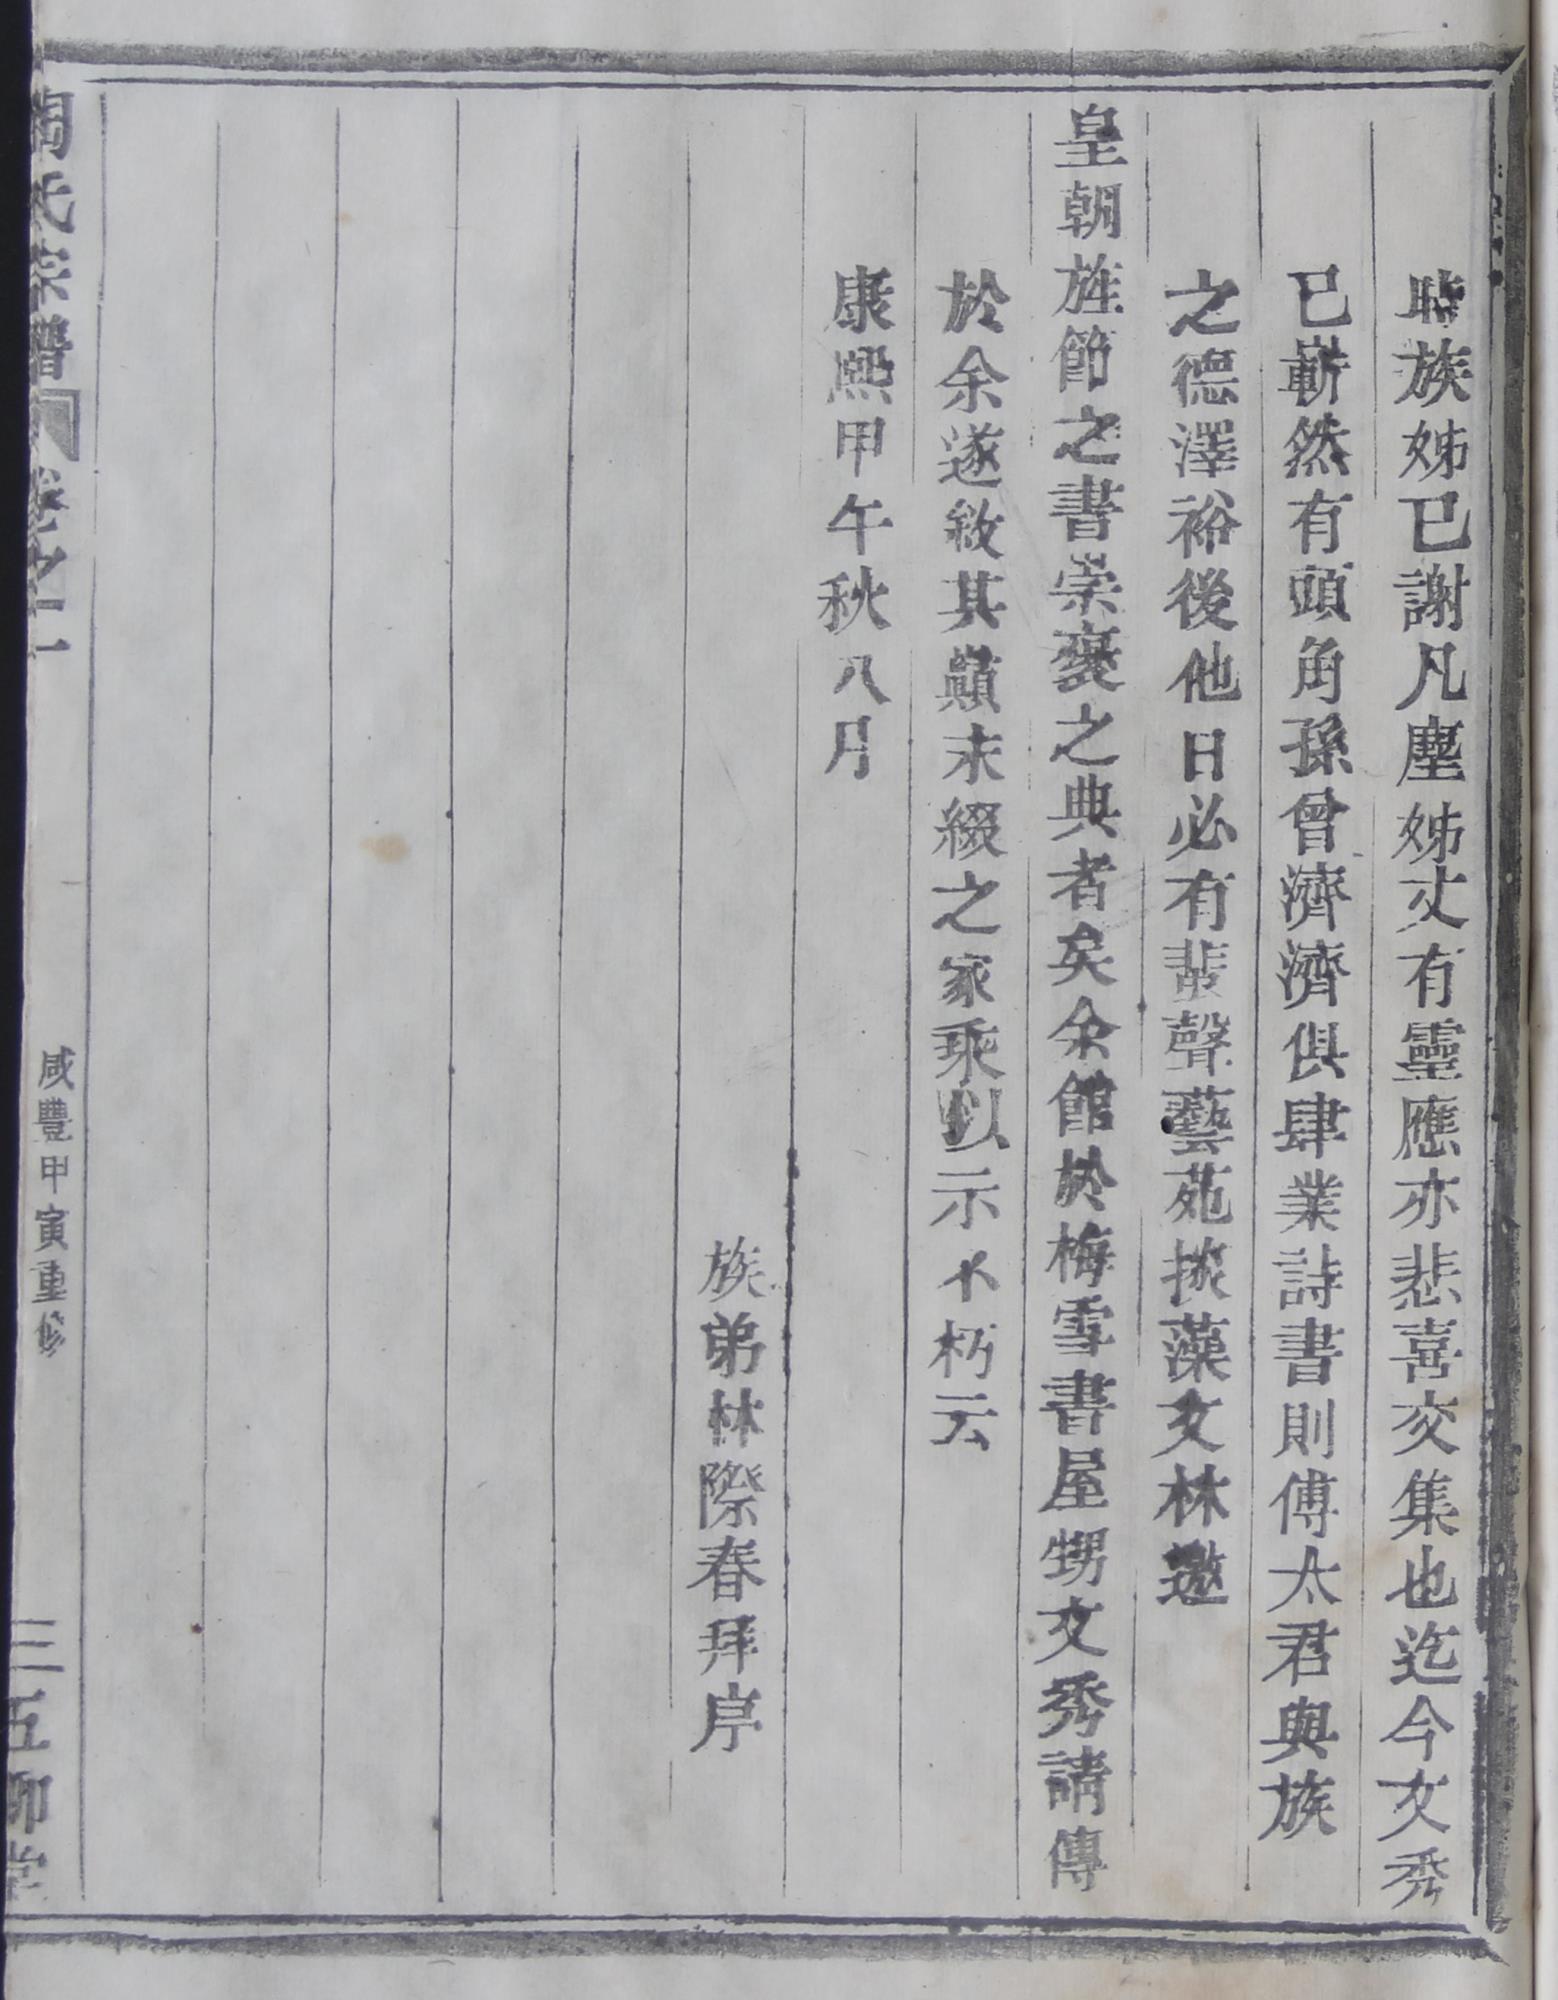 時族姊已謝凡塵姊丈有靈應亦悲喜交集也迄今文秀
已嶄然有頭角孫曾濟濟俱肆業詩書則傅太君與族
之德澤裕後他日必有蜚聲藝苑掞藻文林邀
皇朝旌節之書崇褒之典者矣余館於梅雪書屋甥文秀請傳
於余遂敘其顛末綴之家乘以示不朽云
康熙甲午秋八月
族弟林際春拜序
陶氏宗譜 卷之
咸豐甲寅重修
三五柳堂